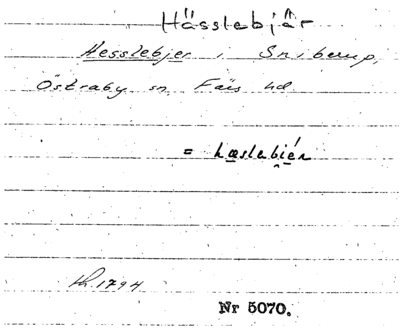 Hässlebjär
Hesslebjer i Sniberup,
Östraby sn Färs hd
= hæslebiér
Nr 5070.